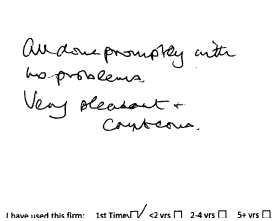 All done promptly with
no problems.
Very pleasant +
courteous.
I have used this firm: 1st Time ☑ <2 yrs ☐ 2-4 yrs ☐ 5+ yrs ☐